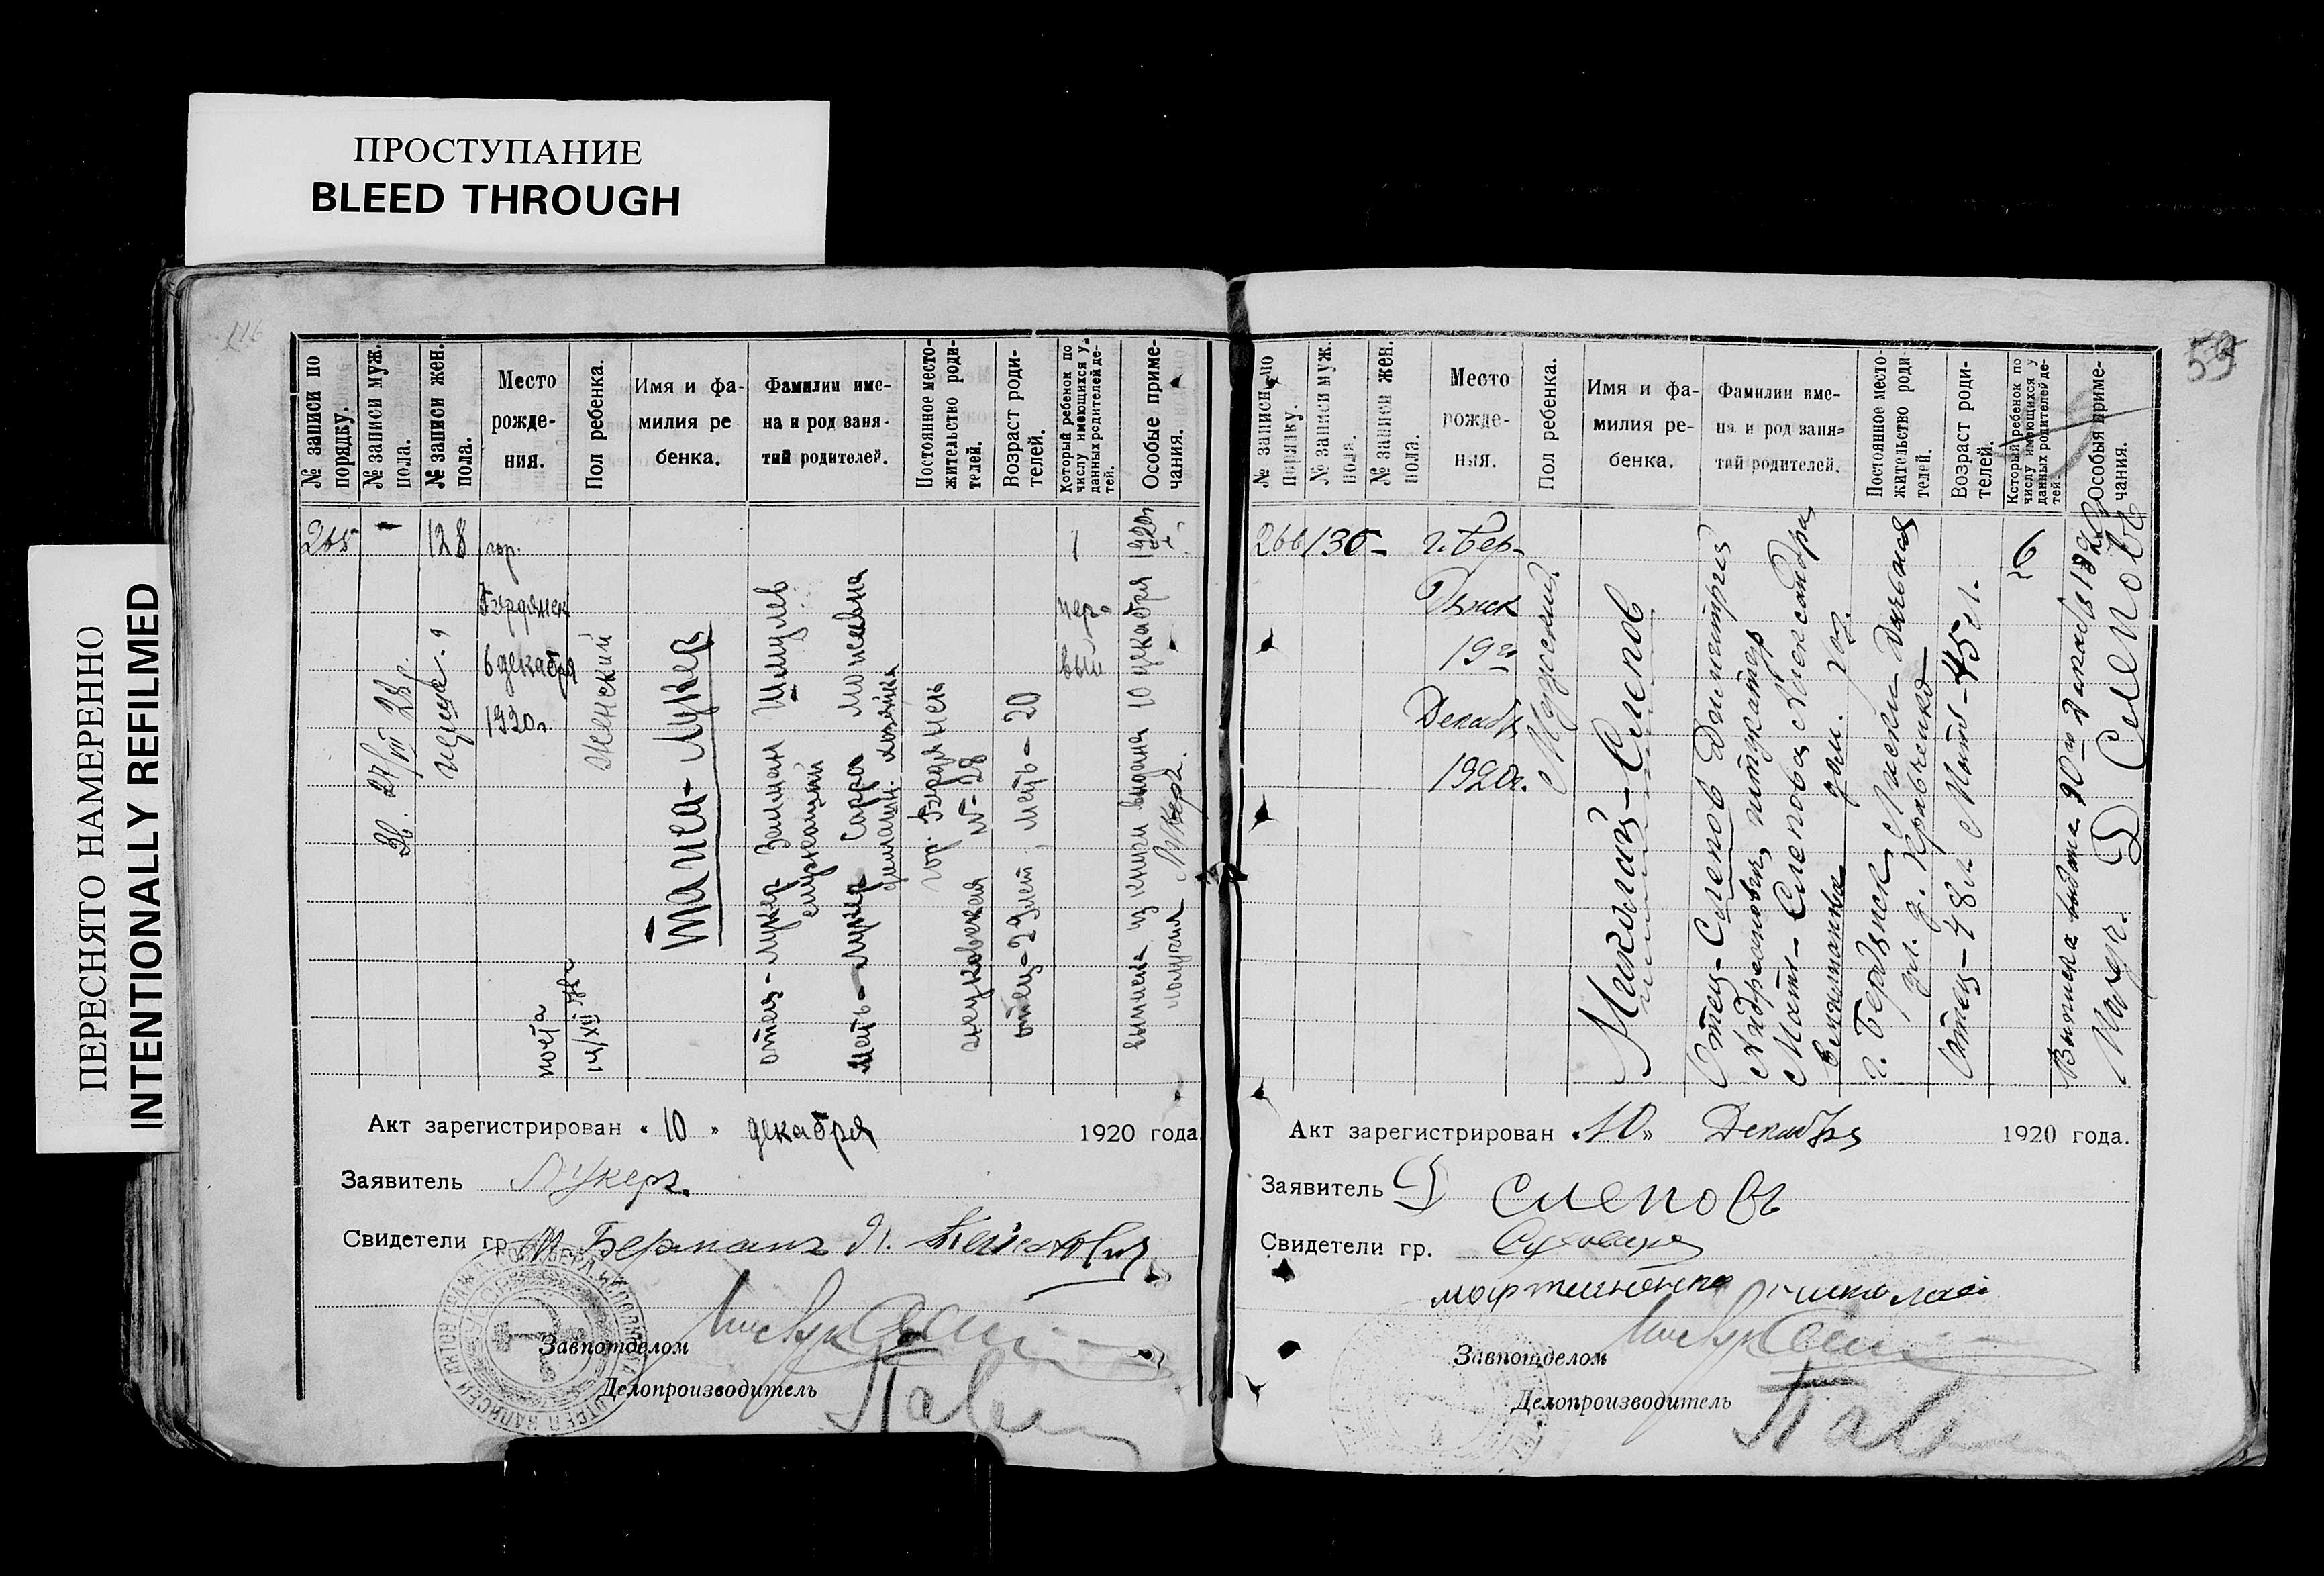 ПРОСТУПАНИЕ
BLEED THROUGH
ПЕРЕСНЯТО НАМЕРЕННО
INTENTIONALLY REFILMED
116
№ записи по порядку.
№ записи муж. пола.
№ записи жен. пола.
Место рожде-ния.
Пол ребенка.
Имя и фа-милия ре бенка.
Фамилии име-на и род заня-тий родителей.
Постоянное место-жительство роди-телей.
Возраст роди-телей.
Который ребенок по числу имеющихся у данных родителей де-тей.
Особые приме-чания.
265
-
128
гор.
Бердянск
6 декабря
1920г.
Женский
Таиса-Лукер
отец-Лукер Залман Шмулев
служащий
Мать-Лукер Сарра Мопсевна
домашн. хозяйка
гор. Бердянск
№-28
отец-29лет, мать-20
1
пер-
вый
выписка из книги выдана 10 декабря 1920г.
получил Лукеръ.
27/VIII 28г.
Акт зарегистрирован «10» декабря 1920 года.
Заявитель Лукеръ.
Свидетели гр. Берманъ
Завпотделом
Делопроизводитель
59
№ записи по порядку.
№ записи муж. пола.
№ записи жен. пола.
Место рожде-ния.
Пол ребенка.
Имя и фа-милия ре-бенка.
Фамилии име-на и род заня-тий родителей.
Постоянное место-жительство роди-телей.
Возраст роди-телей.
Который ребенок по числу имеющихся у данных родителей де-тей.
Особыя приме-чания.
266
136
-
г. Бер-
дянск
19го
Декабр
1920г.
Мужской
Николай-Слепов
Отец-Слепов Димитрий
Андреанович, штукатер
Мать-Слепова Александра
дом. хоз.
г. Бердянск, Лиски Дачная
ул. д. Кравченко
Отец-48л Мать-45л.
6
Выписка выдана 10го Декабря 1920
Получ. Д Слеповъ
Акт зарегистрирован «10» Декабря 1920 года.
Заявитель Д Слеповъ
Свидетели гр.
мартыненко николай
Завпотделом
Делопроизводитель